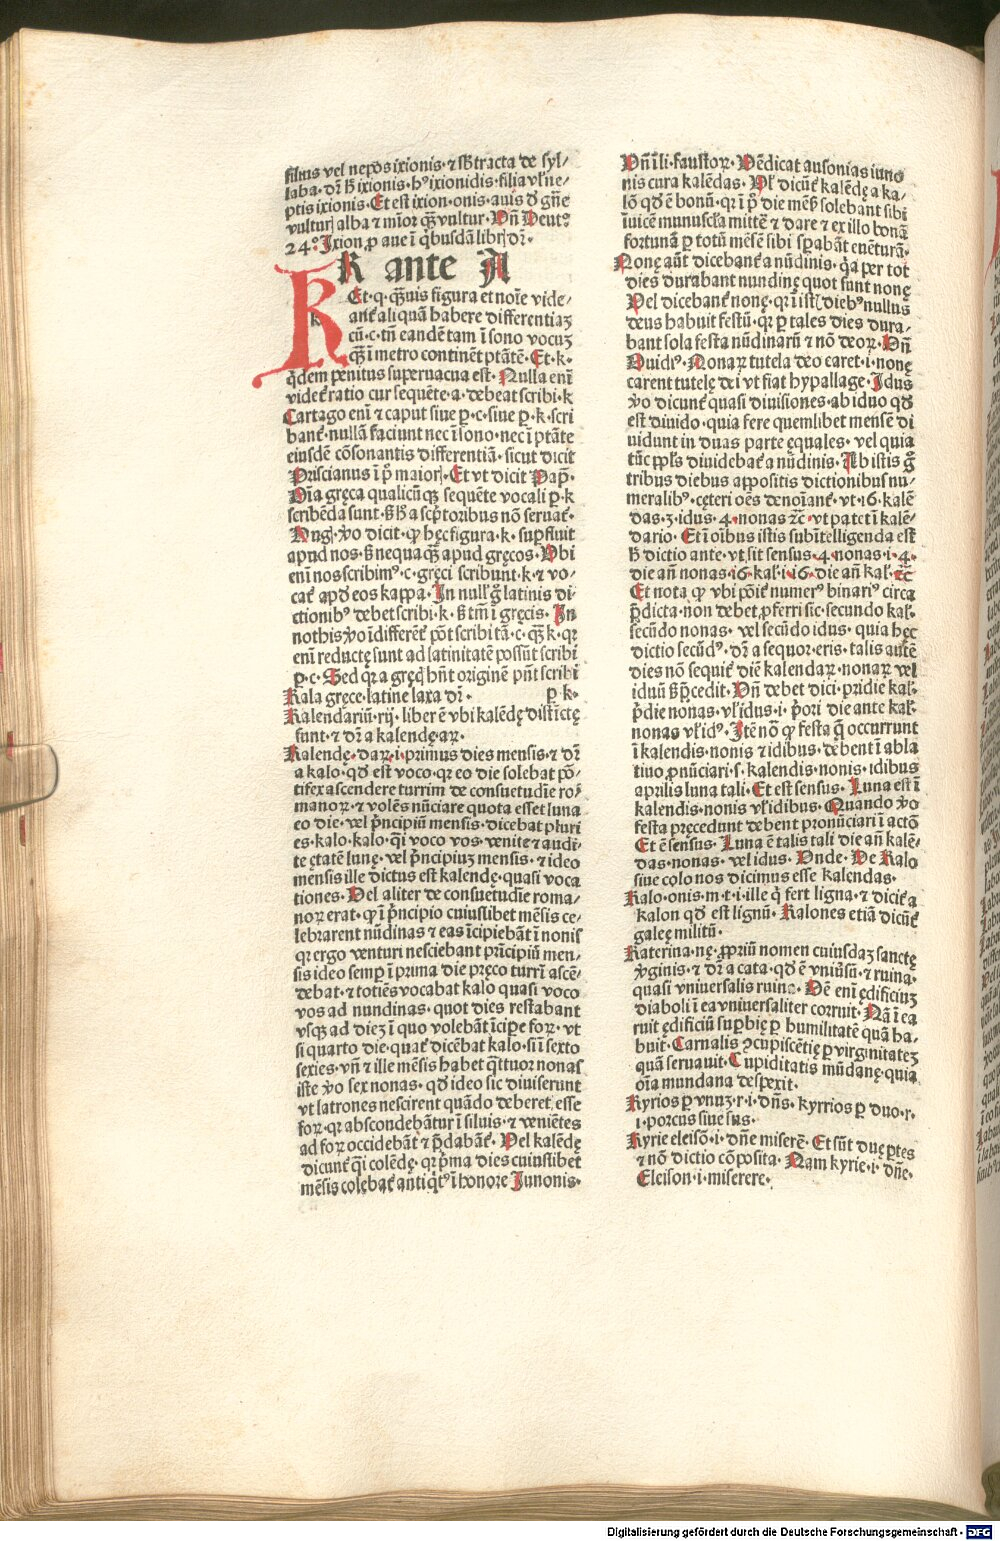 filius vel nepos ixionis· ⁊ sb̄tracta de syl/
laba· dr̄ h̄ ixionis· hꝰ ixionidis· filia vl' ne/
ptis ixionis. Et est ixion· onis· auis d̄ gn̄e
vultur alba ⁊ mīor qꝫ vultur· Vn̄ Deut°
24° Ixion ꝓ aue ī qͥbusdā libr̄ dr̄·
K ante A
K Et· q· qꝫuis figura et noīe vide/
ant̄ aliquā habere differentiaꝫ
cū· c· tn̄ eandē tam ī sono vocuꝫ
qꝫ ī metro continēt ptātē· Et· k·
qͥdem penitus superuacua est· Nulla enī
videt̄ ratio cur sequēte· a· debeat scribi· k
Cartago enī ⁊ caput siue ꝑ· c· siue ꝑ· k· scri
bant̄· nullā faciunt nec ī sono· nec ī ptāte
eiusdē cōsonantis differentiā· sicut dicit
Priscianus ī pͦ maior̄· Et vt dicit Pap̄·
Oīa gręca qualicūqꝫ sequēte vocali ꝑ· k
scribēda sunt· sꝫ h̄ a scptoribus nō seruat̄·
Aug· ꝟo dicit· ꝙ hęc figura· k· supfluit
apud nos· sꝫ nequaqꝫ apud gręcos· Vbi
enī nos scribimꝰ· c· gręci scribunt· k· ⁊ vo/
cat̄ apd̄ eos kappa· In null' g̊ latinis di/
ctionibꝰ debet scribi· k· sꝫ tm̄ ī gręcis· In
nothis ꝟo īdifferēt̄ pōt scribi tā· c· qꝫ k· qꝛ
enī reductę sunt ad latinitatē possūt scribi
ꝑ· c· Sed qꝛ a gręci hn̄t originē pn̄t scribi
Kala gręce· latine laxa dr̄· ꝑ k·
Kalendariū· rij· liber ē vbi kalēdę distīctę
sunt· ⁊ dr̄ a kalendę· aꝝ·
Kalendę· daꝝ· i· primus dies mensis· ⁊ dr̄
a kalo· qd̄ est voco· qꝛ eo die solebat pō/
tifex ascendere turrim de consuetudīe ro/
manoꝝ· ⁊ volēs nūciare quota esset luna
eo die· vel pͥncipiū mensis· dicebat pluri
es· kalo· kalo· qͥ i voco vos· venite ⁊ audi/
te ętatē lunę· vel pͥncipiuꝫ mensis· ⁊ ideo
mensis ille dictus est kalendę· quasi voca
tiones· Vel aliter de consuetudīe roma/
noꝝ erat· ꝙ ī pͥncipio cuiuslibet mēsis ce/
lebrarent nūdinas ⁊ eas īcipiebāt ī nonis
qꝛ ergo venturi nesciebant prīcipiū men/
sis ideo semꝑ ī prima die pręco turrī ascē/
debat· ⁊ totiēs vocabat kalo quasi voco
vos ad nundinas· quot dies restabant
vsqꝫ ad dieꝫ ī quo volebāt īciꝑe foꝝ· vt
si quarto die· quat̄ dicēbat kalo· si ī sexto
sexies· vn̄ ⁊ ille mēsis habet qͣttuor nonas
iste ꝟo sex nonas· qd̄ ideo sic diuiserunt
vt latrones nescirent quādo deberet esse
foꝝ· qꝛ abscondebātur ī siluis· ⁊ veniētes
ad foꝝ occidebāt ⁊ pͥdabāt̄· Vel kalēdę
dicunt̄ qͣi colēdę· qꝛ pͥma dies cuiuslibet
mēsis colebat̄ antiqͥtꝰ ī honore Junonis·
Vn̄ ī li· faustoꝝ· Vēdicat ausonias iuno
nis cura kalēdas· Vl' dicūt̄ kalēdę a ka/
lō qd̄ ē bonū· qꝛ ī pͦ die mēs̄ solebant sibi
īuicē munuscl'a mittē ⁊ dare ⁊ ex illo bonā
fortunā ꝑ totū mēsē sibi spabāt euēturā·
Nonę aūt dicebant̄ a nūdinis· qͥa per tot
dies durabant nundinę quot sunt nonę
Vel dicebant̄ nonę· qꝛ ī istis diebꝰ nullus
deus habuit festū· qꝛ ꝑ tales dies dura/
bant sola festa nūdinarū ⁊ nō deoꝝ· Vn̄
Ouidiꝰ· Nonaꝝ tutela deo caret· i· nonę
carent tutelę dei vt fiat hypallage· Idus
ꝟo dicunt̄ quasi diuisiones· ab iduo qd̄
est diuido· quia fere quemlibet mensē di
uidunt in duas parte ęquales· vel quia
tūc ppl's diuidebat̄ a nūdinis· Ab istis g̊
tribus diebus appositis dictionibus nu/
meralibꝰ· cęteri oēs denoīant̄· vt· 16· kalē
das· 3· idus· 4· nonas ⁊c̄· vt patet ī kalē/
dario· Et ī oībus istis subītelligenda est
h̄ dictio ante· vt sit sensus· 4· nonas· i· 4·
die an̄ nonas· 16· kal'· i· 16· die an̄ kal'· ⁊c̄
Et nota ꝙ vbi pōit̄ numerꝰ binariꝰ circa
pͥdicta· non debet ꝓferri sic· secundo kal'·
secūdo nonas· vel secūdo idus· quia hęc
dictio secūdꝰ· dr̄ a sequor· eris· talis autē
dies nō sequit̄ diē kalendaꝝ· nonaꝝ vel
iduū sꝫ pͥcedit· Vn̄ debet dici· pridie kal'·
pͥdie nonas· vl' idus· i· pͥori die ante kal'·
nonas vl' idꝰ· Itē nō ꝙ festa q̄ occurrunt
ī kalendis· nonis ⁊ idibus· debent ī abla
tiuo ꝓnūciari· s· kalendis· nonis· idibus
aprilis luna tali· Et est sensus· Luna est ī
kalendis· nonis vl' idibus· Quando ꝟo
festa pręcedunt debent pronūciari ī actō
Et ē sensus· Luna ē talis tali die an̄ kalē/
das· nonas· vel idus· Vnde· De Kalo
siue colo nos dicimus esse kalendas·
Kalo· onis· m· t· i· ille qͥ fert ligna· ⁊ dicit̄ a
kalon qd̄ est lignū· Kalones etiā dicūt̄
galeę militū·
Katerina· nę· ꝓpriū nomen cuiusdaꝫ sanctę
ꝟginis· ⁊ dr̄ a cata· qd̄ ē vniūsū· ⁊ ruina·
quasi vniuersalis ruina· Dē enī ędificiuꝫ
diaboli ī ea vniuersaliter corruit· Nā ī ea
ruit ędificiū supbię ꝑ humilitatē quā ha/
buit· Carnalis ꝯcupiscētię ꝑ virginitateꝫ
quā seruauit· Cupiditatis mūdanę· quia
oīa mundana despexit·
Kyrios ꝑ vnuꝫ· r· i· dn̄s· kyrrios ꝑ duo· r·
i· porcus siue sus·
Kyrie eleisō· i· dn̄e miserē· Et sūt duę ꝑtes
⁊ nō dictio cōposita· Nam kyrie· i· dn̄e·
Eleison· i· miserere·
Digitalisierung gefördert durch die Deutsche Forschungsgemeinschaft - DFG